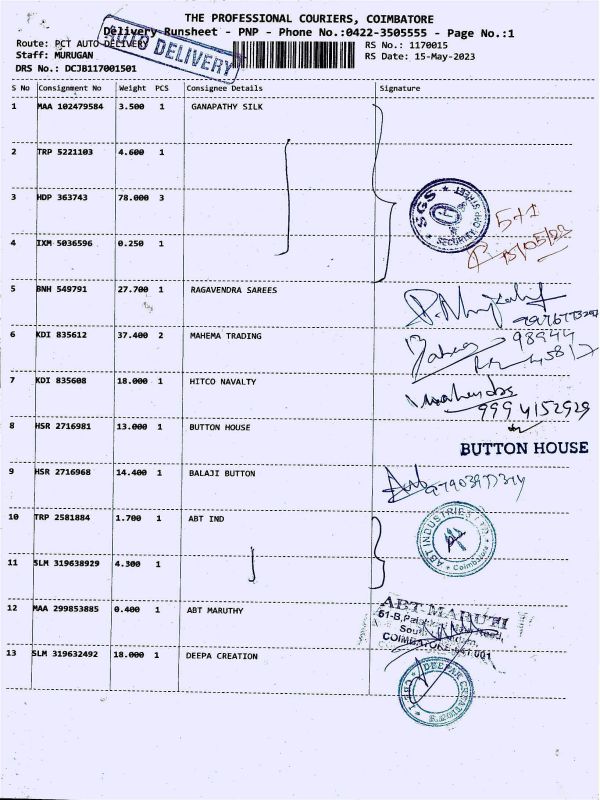 THE PROFESSIONAL COURIERS, COIMBATORE
Delivery Runsheet - PNP - Phone No.:0422-3505555 - Page No.:1
Route: PCT AUTO DELIVERY
AUTO DELIVERY
RS No.: 1170015
Staff: MURUGAN
RS Date: 15-May-2023
DRS No.: DCJB117001501
S No Consignment No Weight PCS Consignee Details Signature
1 MAA 102479584 3.500 1 GANAPATHY SILK
2 TRP 5221103 4.600 1
3 HDP 363743 78.000 3
SGS STREET SECURITY OFF
5+1
4 IXM 5036596 0.250 1
5 BNH 549791 27.700 1 RAGAVENDRA SAREES
6 KDI 835612 37.400 2 MAHEMA TRADING
98944
7 KDI 835608 18.000 1 HITCO NAVALTY
9994152929
8 HSR 2716981 13.000 1 BUTTON HOUSE
BUTTON HOUSE
9 HSR 2716968 14.400 1 BALAJI BUTTON
10 TRP 2581884 1.700 1 ABT IND
ABT INDUSTRIES LTD Coimbatore
11 SLM 319638929 4.300 1
12 MAA 299853885 0.400 1 ABT MARUTHY
ABT MARUTI
51-B,
Road,
COIMBATORE-641 001
13 SLM 319632492 18.000 1 DEEPA CREATION